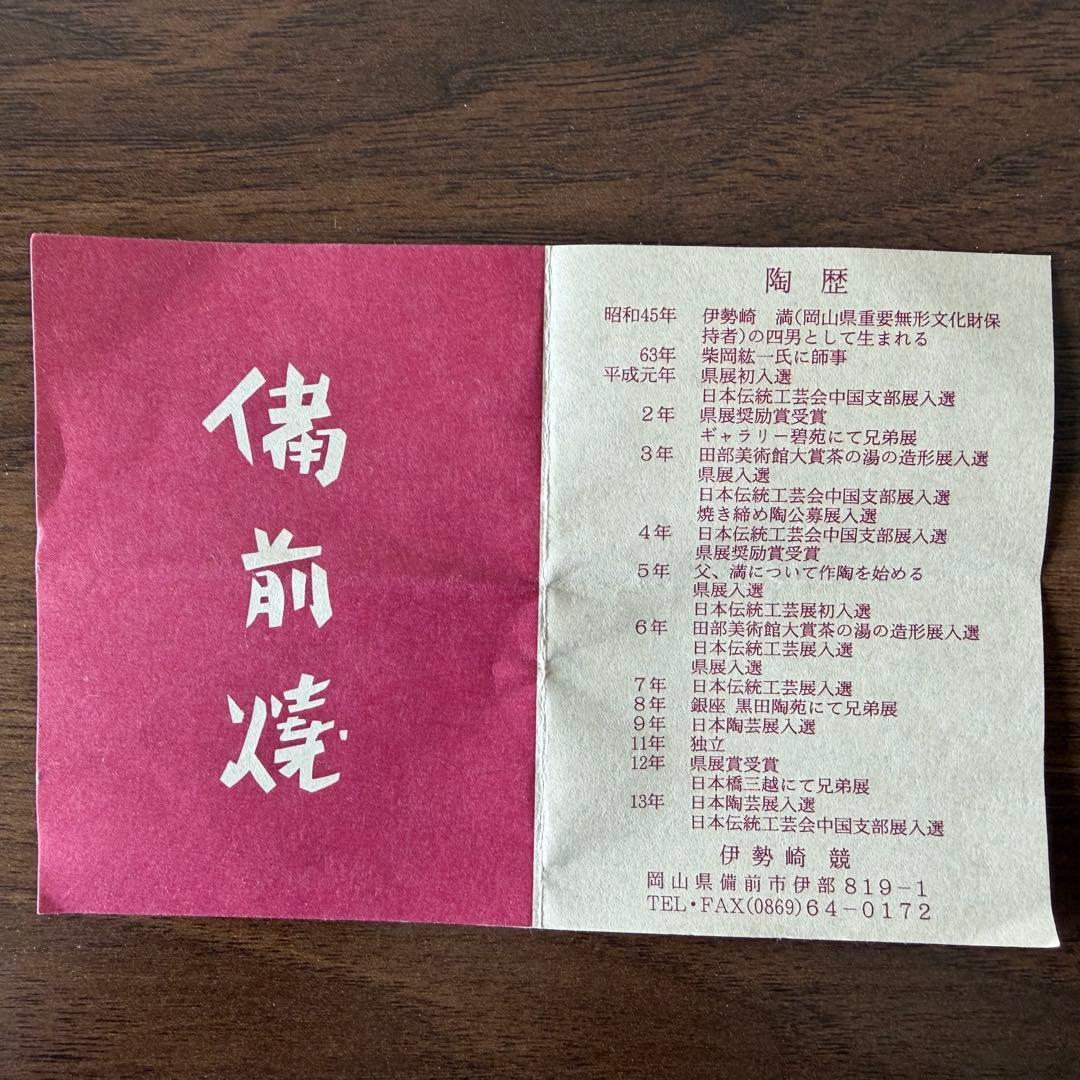 備前焼
陶歴
昭和45年 伊勢崎 満(岡山県重要無形文化財保
持者)の四男として生まれる
63年 柴岡紘一氏に師事
平成元年 県展初入選
日本伝統工芸会中国支部展入選
2年 県展奨励賞受賞
ギャラリー碧苑にて兄弟展
3年 田部美術館大賞茶の湯の造形展入選
県展入選
日本伝統工芸会中国支部展入選
焼き締め陶公募展入選
4年 日本伝統工芸会中国支部展入選
県展奨励賞受賞
5年 父、満について作陶を始める
県展入選
日本伝統工芸展初入選
6年 田部美術館大賞茶の湯の造形展入選
日本伝統工芸展入選
県展入選
7年 日本伝統工芸展入選
8年 銀座 黒田陶苑にて兄弟展
9年 日本陶芸展入選
11年 独立
12年 県展賞受賞
日本橋三越にて兄弟展
13年 日本陶芸展入選
日本伝統工芸会中国支部展入選
伊勢崎 競
岡山県備前市伊部819-1
TEL・FAX(0869)64-0172